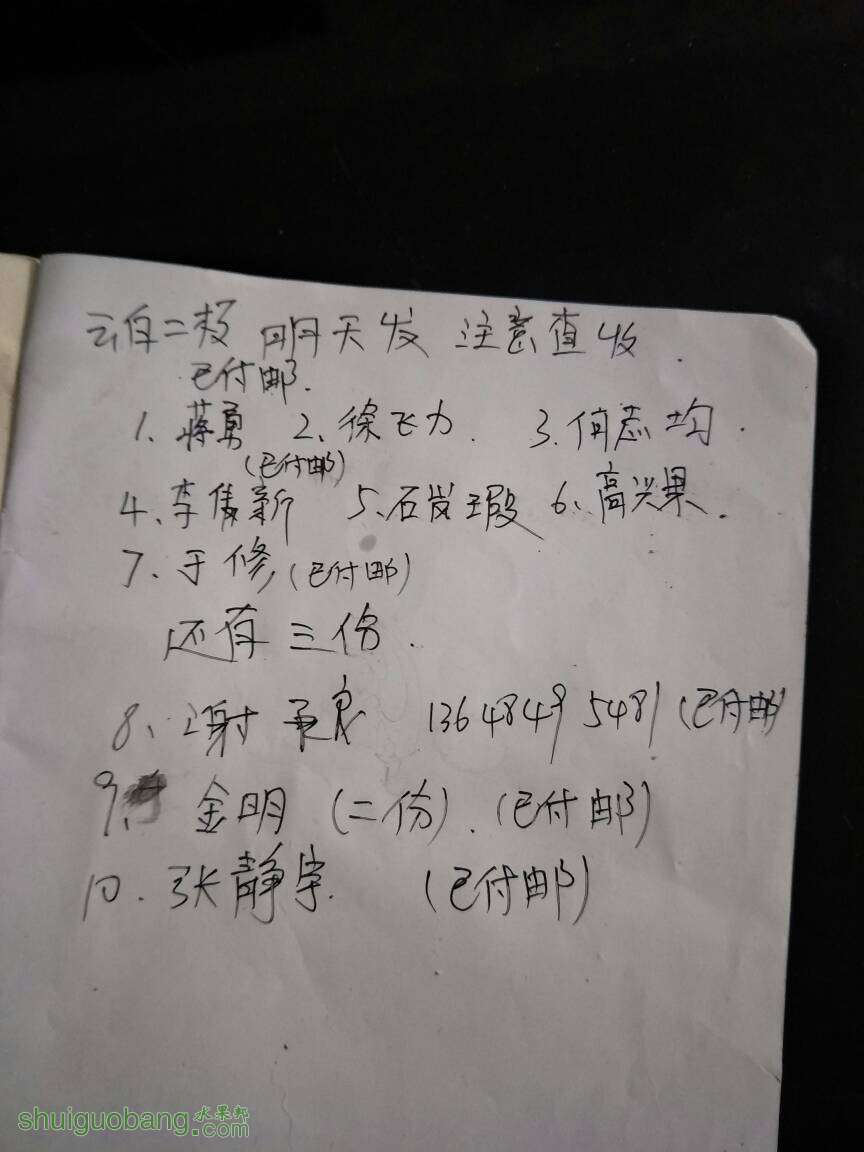 云白二板 明天发 注意查收.
已付邮.
1、蒋勇 2、徐飞力. 3.何志均.
(已付邮)
4、李隽新 5、石发瑕 6、高兴果.
7、于修(已付邮)
还有三份.
8、谢承良 13648495481(已付邮)
9、金明(二份).(已付邮)
10.张静宇.(已付邮)
shuiguobang.com 水果邦